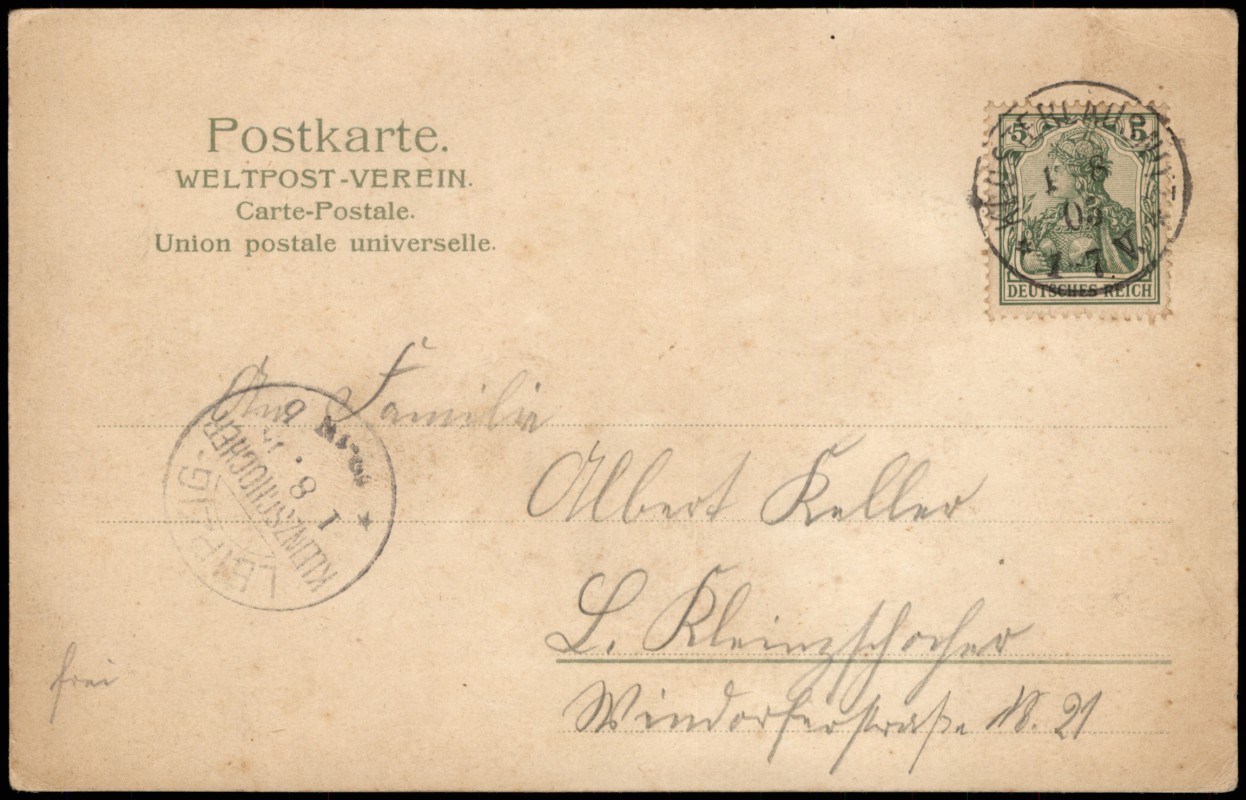 Postkarte.
WELTPOST-VEREIN.
Carte-Postale.
Union postale universelle.
5 5
KLOSTERLAUSNITZ
8
05
7 V.
DEUTSCHES REICH
An Familie
Albert Keller
L. Kleinzschocher
Windorferstraße N. 21
LEIPZIG-
KLEINZSCHOCHER
1 8
frei